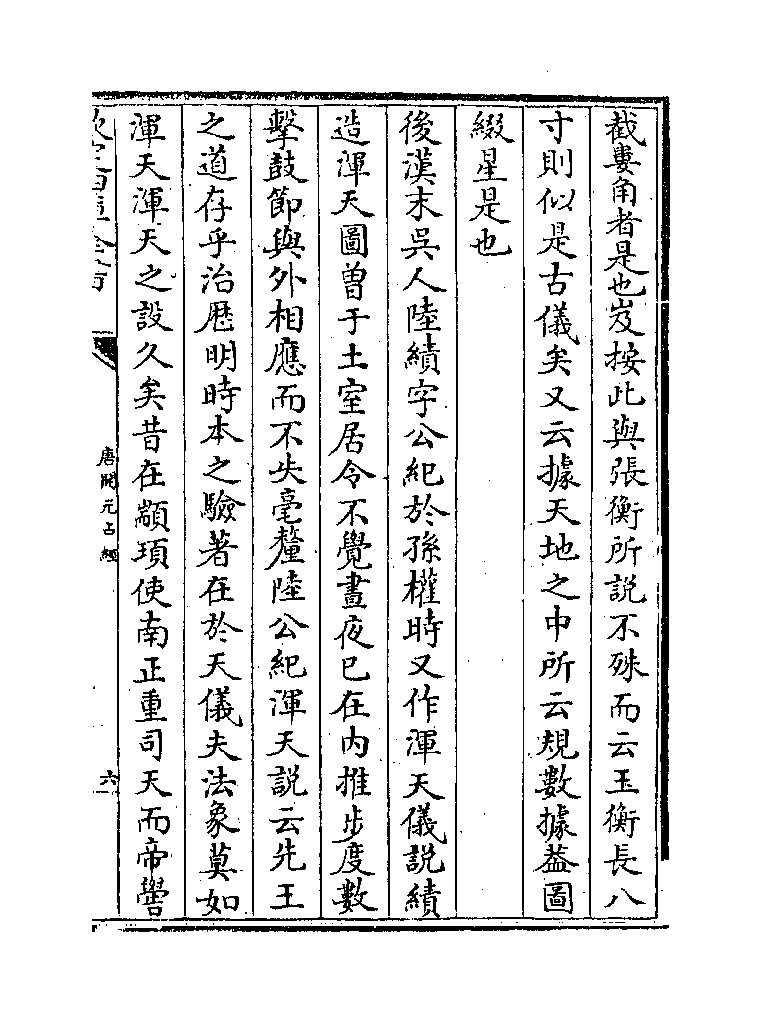 截婁角者是也岌按此與張衡所説不殊而云玉衡長八
寸則似是古儀矣又云據天地之中所云規數據葢圖
綴星是也
後漢末吳人陸績字公紀於孫權時又作渾天儀説績
造渾天圖曽于土室居令不覺晝夜已在内推步度數
擊鼓節與外相應而不失毫釐陸公紀渾天説云先王
之道存乎治厯明時本之驗著在於天儀夫法象莫如
渾天渾天之設久矣昔在顓頊使南正重司天而帝嚳
欽定四庫全書
唐開元占經
六